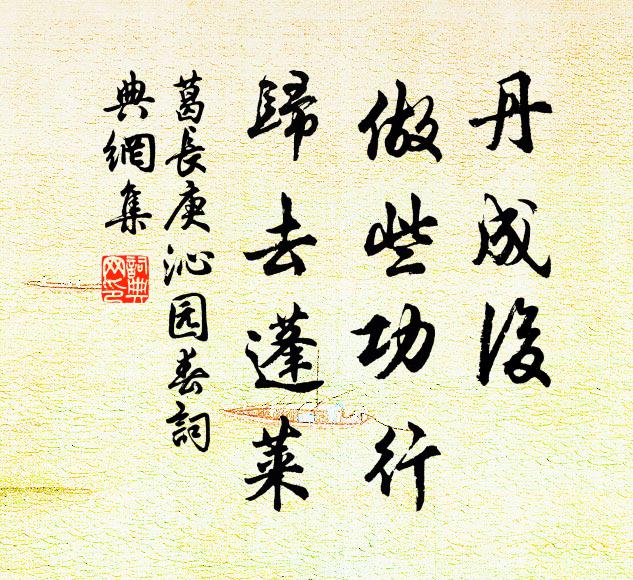 丹成後
做些功行
歸去蓬萊
葛長庚沁园春詞
典網集
詞典网印